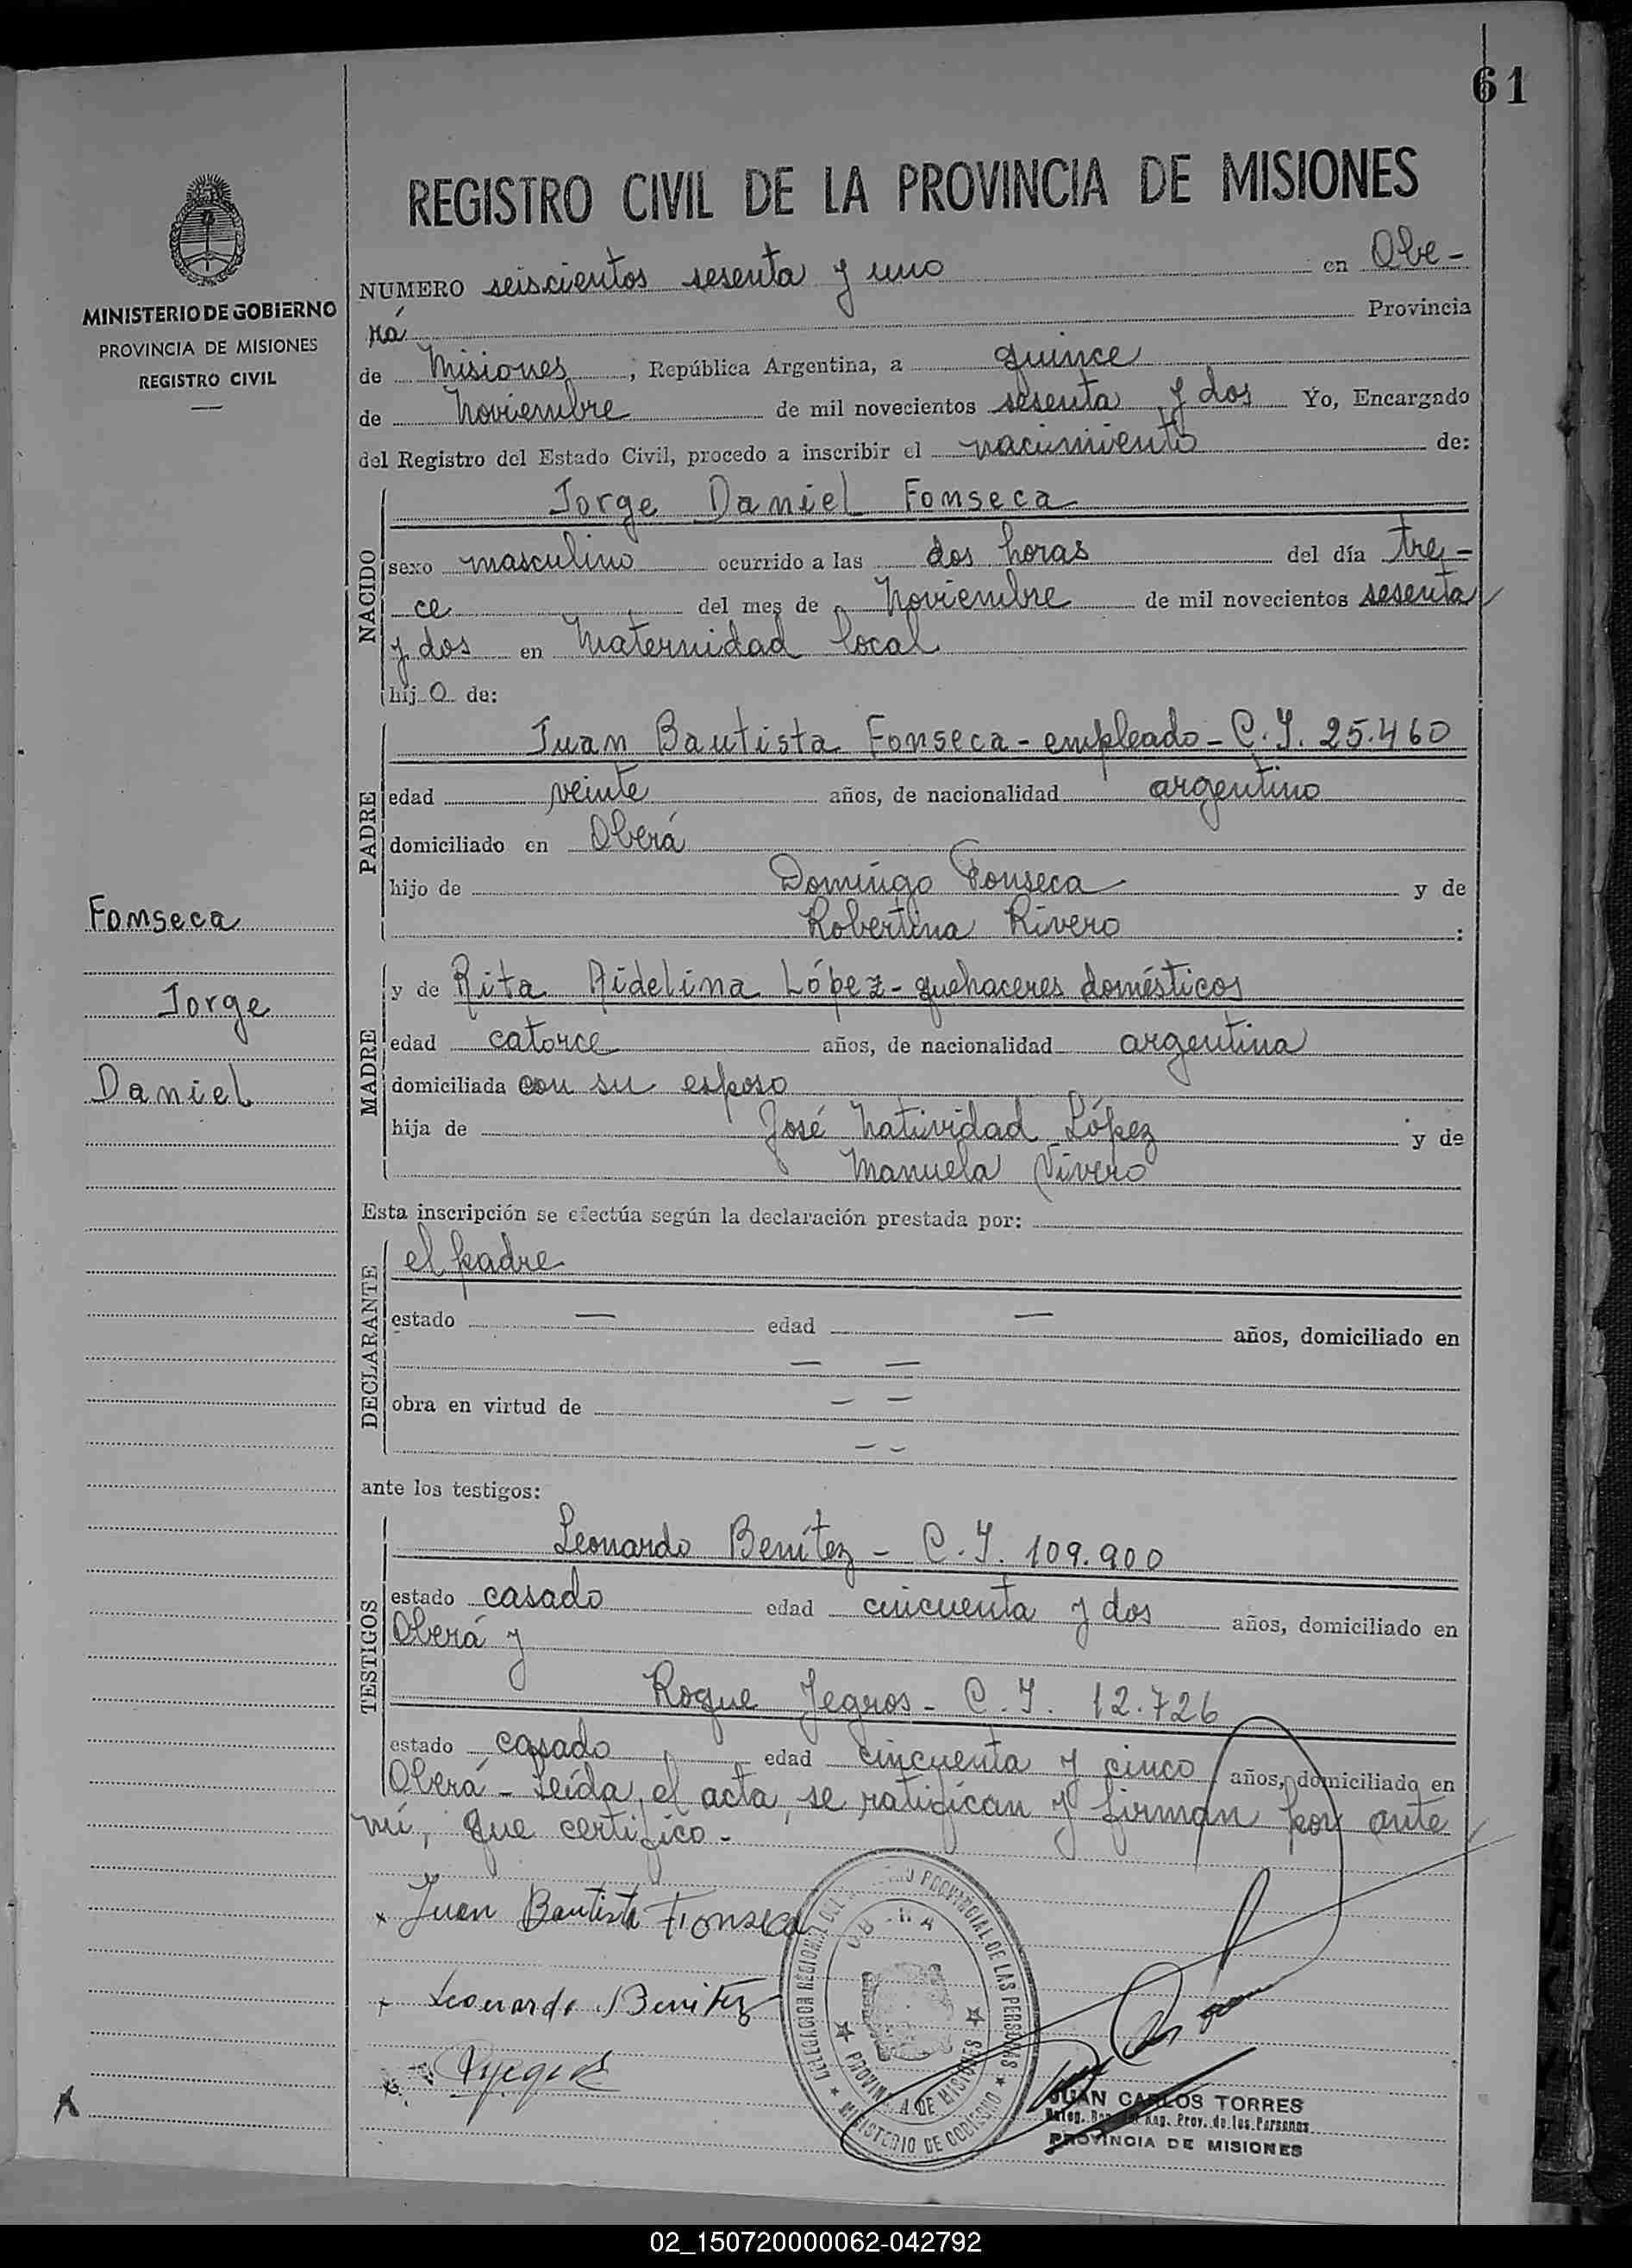 61
REGISTRO CIVIL DE LA PROVINCIA DE MISIONES
MINISTERIO DE GOBIERNO
PROVINCIA DE MISIONES
REGISTRO CIVIL
NUMERO seiscientos sesenta y uno en Obe-
rá Provincia
de Misiones, República Argentina, a quince
de Noviembre de mil novecientos sesenta y dos Yo, Encargado
del Registro del Estado Civil, procedo a inscribir el nacimiento de:
NACIDO
Jorge Daniel Fonseca
sexo masculino ocurrido a las dos horas del día tre-
ce del mes de Noviembre de mil novecientos sesenta
y dos en Maternidad local
hijo de:
PADRE
Juan Bautista Fonseca - empleado - C. I. 25.460
edad veinte años, de nacionalidad argentino
domiciliado en Oberá
hijo de Domingo Fonseca y de
Robertina Rivero :
Fonseca
Jorge
Daniel
MADRE
y de Rita Aidelina López - quehaceres domésticos
edad catorce años, de nacionalidad argentina
domiciliada con su esposo
hija de José Natividad López y de
Manuela Vivero
Esta inscripción se efectúa según la declaración prestada por:
DECLARANTE
el padre
estado — edad — años, domiciliado en
— —
obra en virtud de — —
— —
ante los testigos:
TESTIGOS
Leonardo Benítez - C. I. 109.900
estado casado edad cincuenta y dos años, domiciliado en
Oberá y
Roque Yegros - C. I. 12.726
estado casado edad cincuenta y cinco años, domiciliado en
Oberá - Leída el acta, se ratifican y firman por ante
mí, que certifico.-
x Juan Bautista Fonseca
x Leonardo Benitez
DELEGACION REGIONAL DEL PROVINCIAL DE LAS PERSONAS
MINISTERIO DE GOBIERNO
PROVINCIA DE MISIONES
JUAN CARLOS TORRES
Reg. Prov. de las Personas
PROVINCIA DE MISIONES
02_150720000062-042792